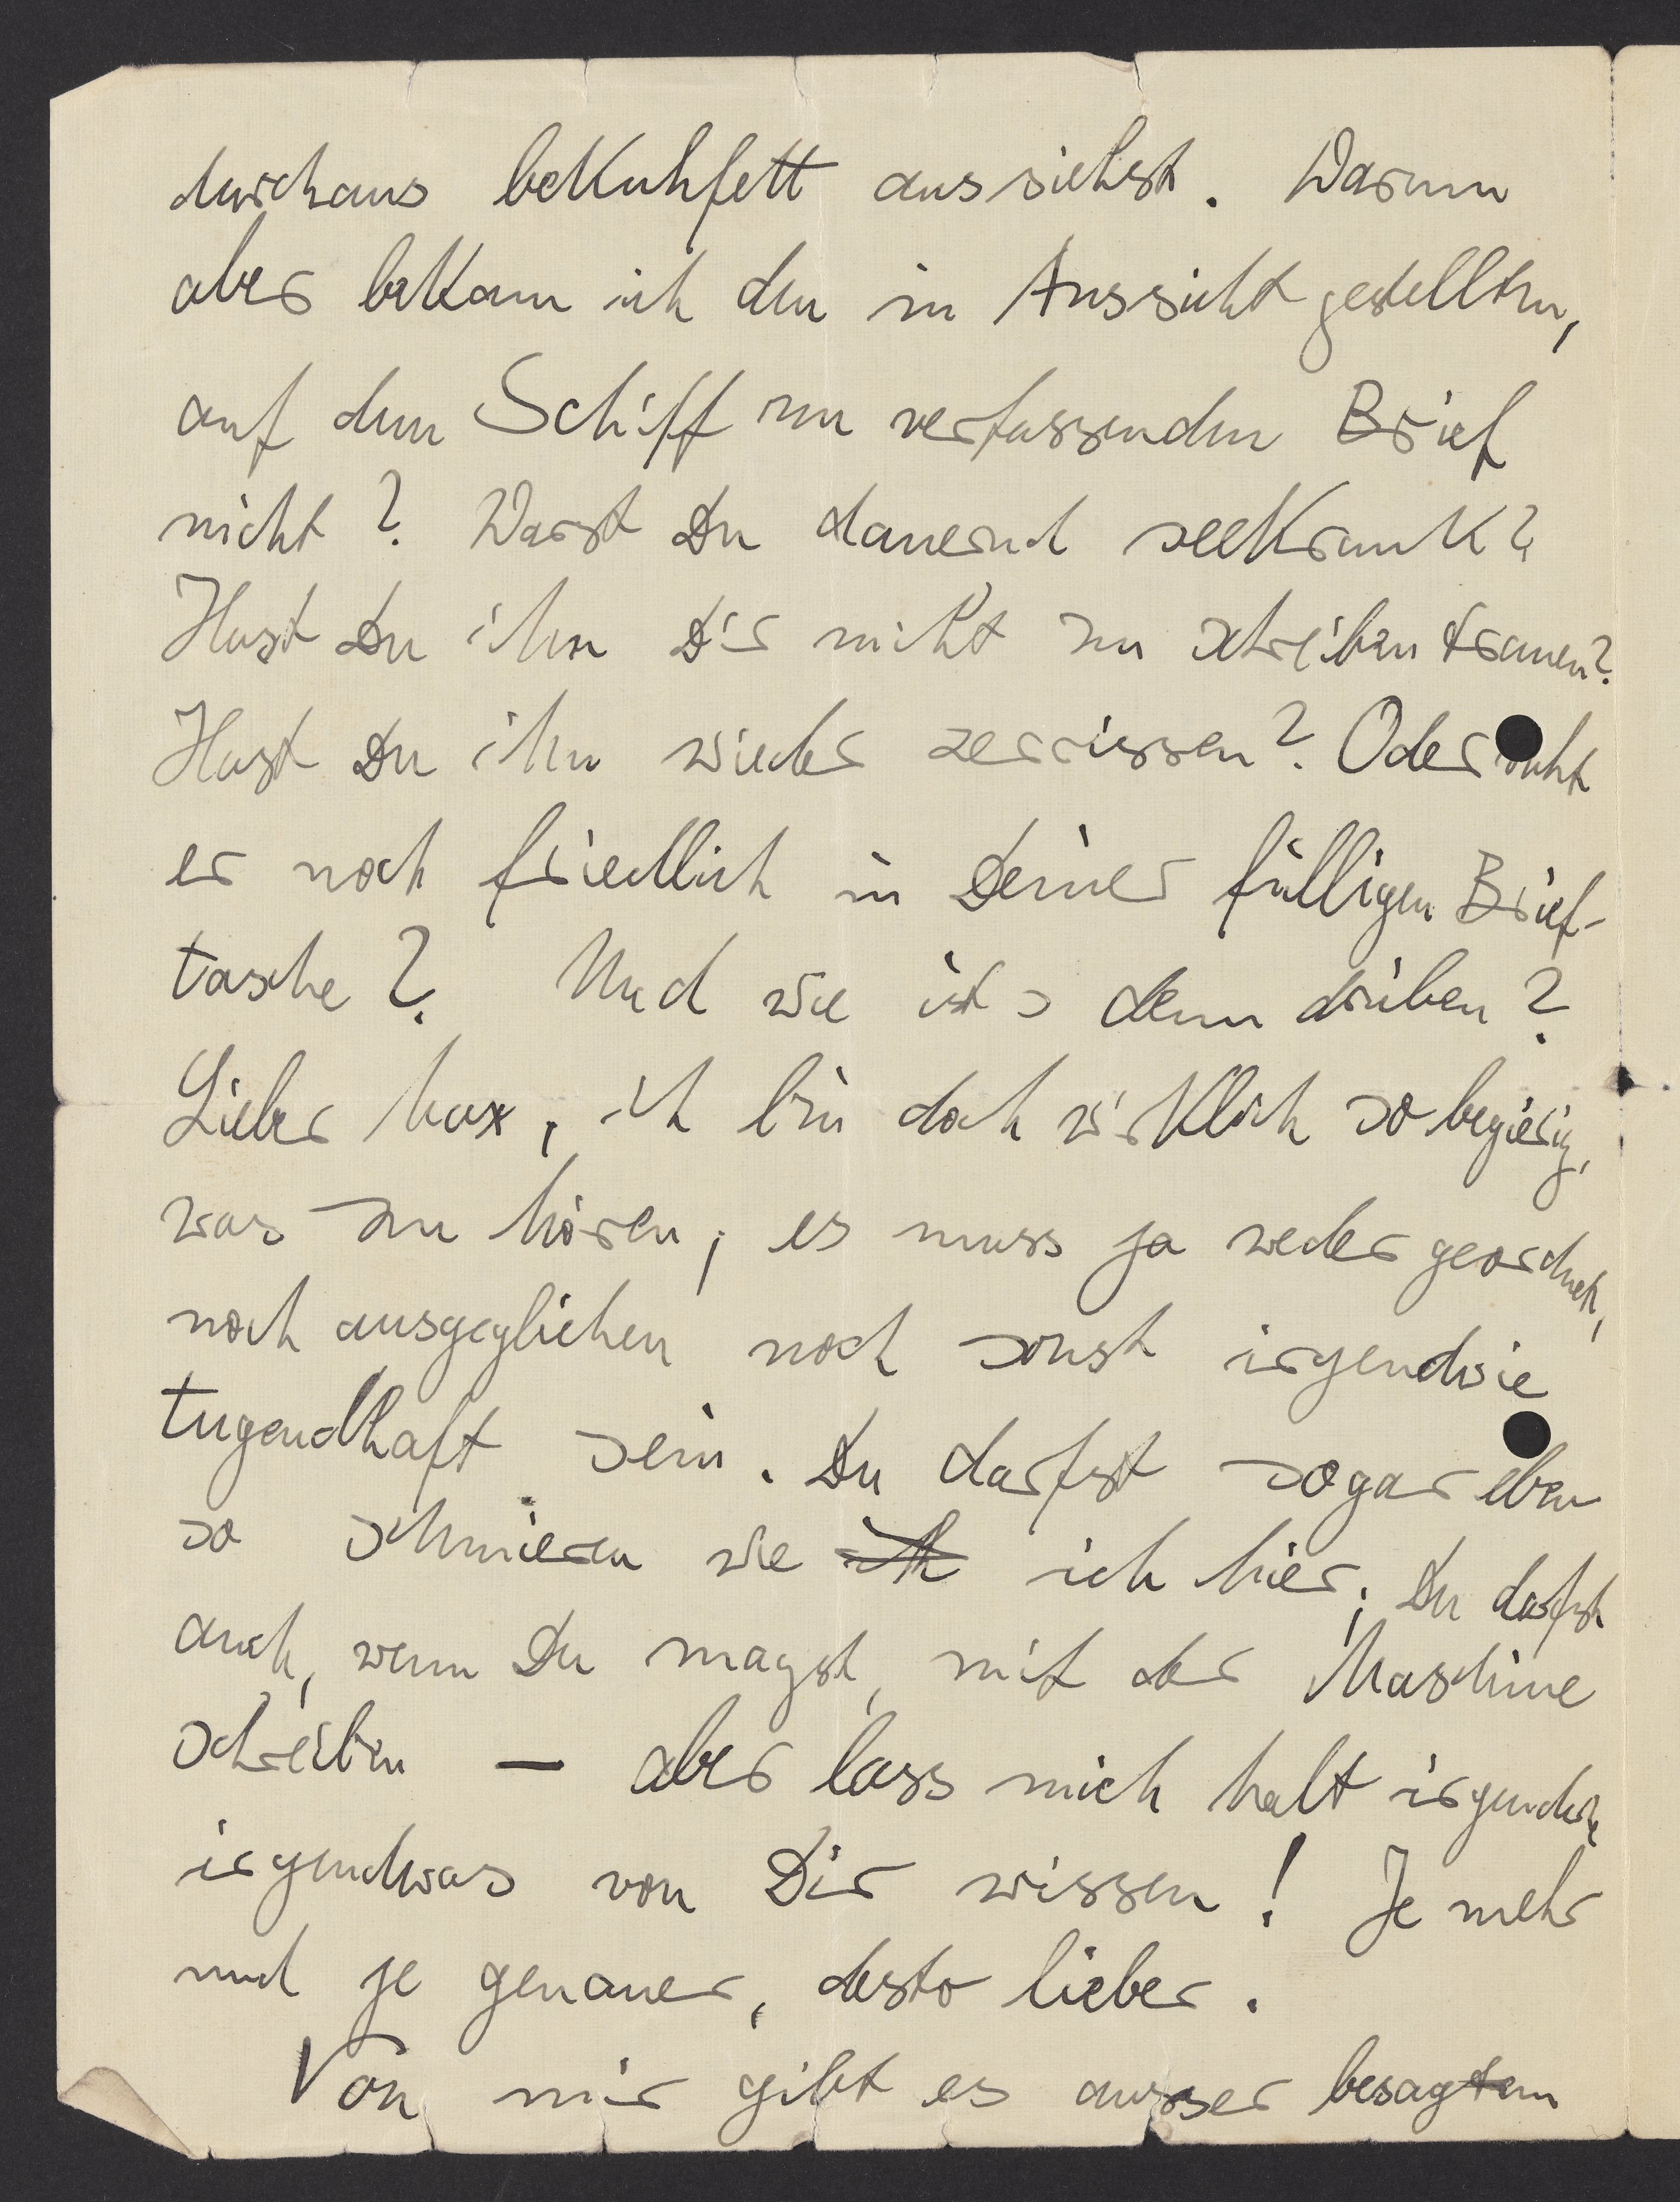 durchaus beKuhfett aussiehst. Warum
aber beKam ich den in Aussicht gestellten,
auf dem Schiff zu verfassenden Brief
nicht? Warst Du dauernd seeKranK?
Hast Du ihn Dir nicht zu schreiben trauen?
Hast Du ihn wieder zerrissen? Oder ruht
er noch friedlich in Deiner fülligen Brief-
tasche? Und wie ist's denn drüben?
Lieber Max, ich bin doch wirKlich so begierig,
was zu hören; es muss ja weder geordnet,
noch ausgeglichen noch sonst irgendwie
tugendhaft sein. Du darfst sogar eben
so schmieren wie ich ich hier; Du darfst
auch, wenn Du magst, mit der Maschine
schreiben — aber lass mich halt irgendwie
irgendwas von Dir wissen! Je mehr
und je genauer, desto lieber.
Von mir gibt es ausser besagtem